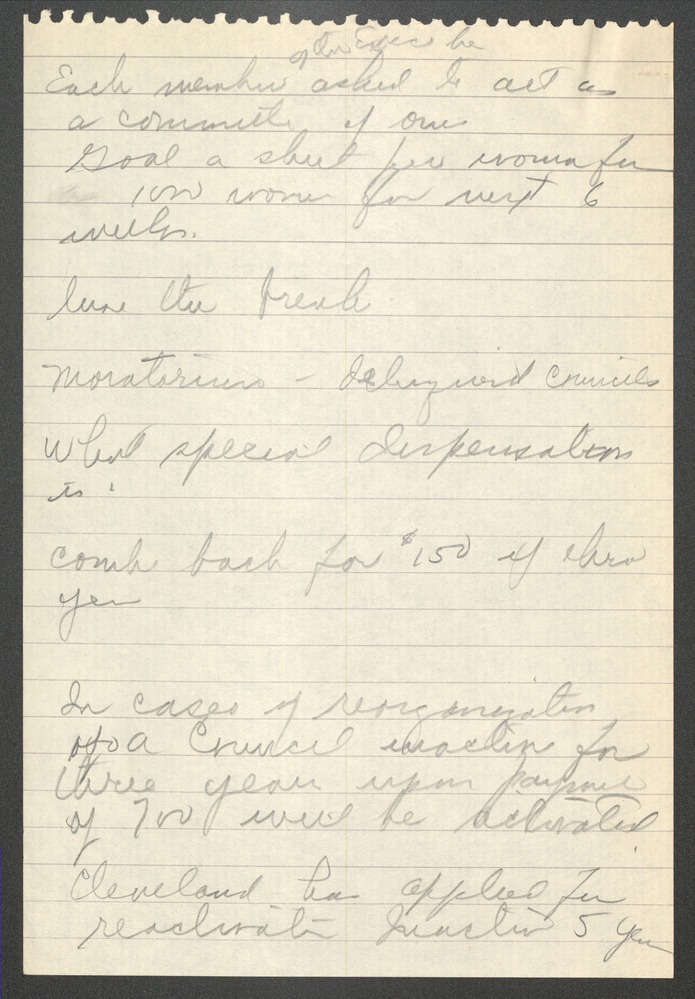 of the Exec be
Each member asked to act as
a committee of one
Goal a sheet per woman for
1000 women for next 6
weeks.
the break
Moratorium - delinquent councils
What special dispensations
is
comb back for $150 if thro
year
In cases of reorganization
of a Council inactive for
three years upon payment
of 700 will be activated
Cleveland has applied for
reactivation Inactive 5 years